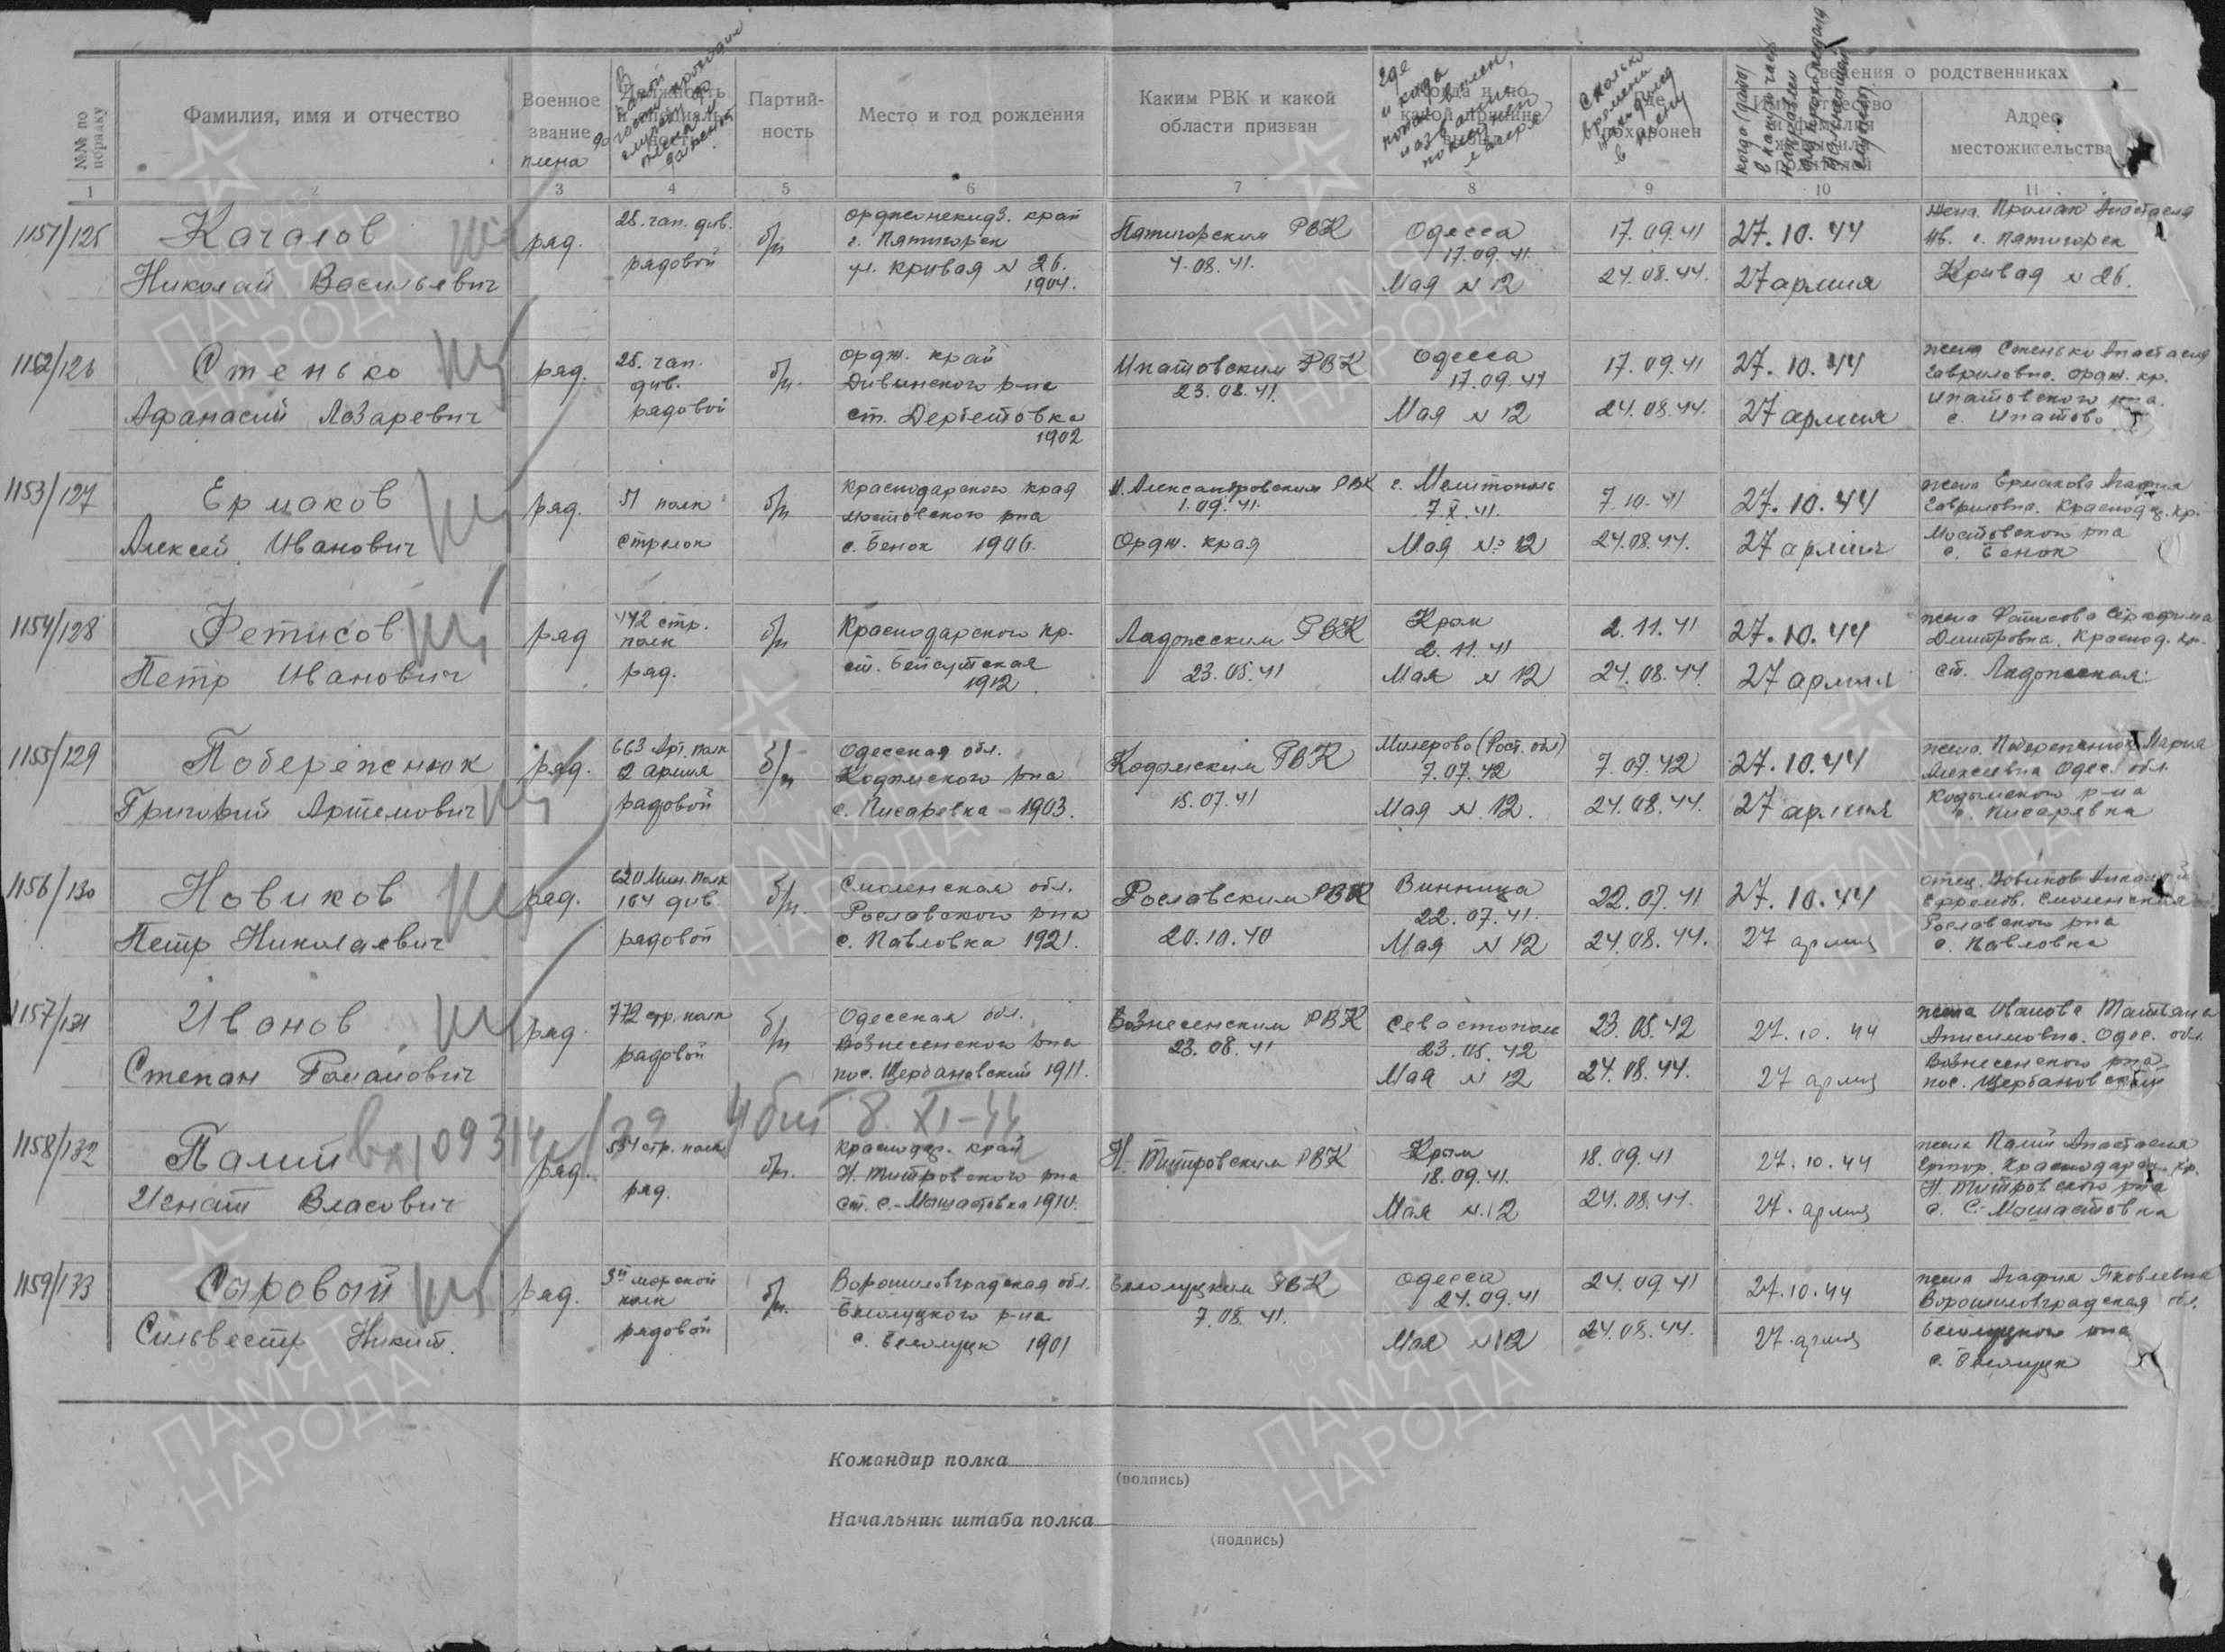 №№ по порядку
Фамилия, имя и отчество
Военное звание
до плена
Партий-
ность
Место и год рождения
Каким РВК и какой
области призван
Сведения о родственниках
Адрес
местожительства
1 2 3 4 5 6 7 8 9 10 11
1151/125
Качалов
Николай Васильевич
ряд.
25. чап. див.
рядовой
б/п
Орджоникидз. край
г. Пятигорск
ул. Кривая № 26.
1904.
Пятигорским РВК
4.08.41.
Одесса
17.09.41.
Мая № 12
17.09.41
24.08.44.
27.10.44
27 армия
г. Пятигорск
Кривая № 26.
1152/126
Стенько
Афанасий Лазаревич
ряд.
25. чап.
див.
рядовой
б/п.
Ордж. край
Дивинского р-на
ст. Дербетовка
1902
Ипатовским РВК
23.08.41.
Одесса
17.09.41
Мая № 12
17.09.41
24.08.44.
27.10.44
27 армия
жена Стенько Анастасия
Гавриловна. Ордж. кр.
Ипатовского р-на.
с. Ипатово
1153/127
Ермаков
Алексей Иванович
ряд.
51 полк
стрелок
б/п
Краснодарского края
Мостовского рна
с. Бенок 1906.
И. Александровским РВК
1.09.41.
Ордж. края
г. Мелитополь
7.X.41.
Мая № 12
7.10.41
24.08.44.
27.10.44
27 армия
жена Ермакова Агафия
Гавриловна. Краснод. кр.
Мостовского рна
с. Бенок
1154/128
Фетисов
Петр Иванович
ряд
442 стр.
полк
ряд.
б/п
Краснодарского кр.
ст. Бейсугская
1912.
Ладожским РВК
23.05.41
Крым
2.11.41
Мая № 12
2.11.41
24.08.44.
27.10.44
27 армия
жена Фетисова Серафима
Дмитровна. Краснод. кр.
ст. Ладожская
1155/129
Побережнюк
Григорий Артемович
ряд.
663 Арт. полк
2 армия
рядовой
б/п
Одесская обл.
Кодымского рна
с. Писаревка - 1903.
Кодымским РВК
15.07.41
Милерово (Рост. обл)
7.07.42
Мая № 12.
7.07.42
24.08.44.
27.10.44
27 армия
жена Побережнюк Мария
Алексеевна Одес. обл.
Кодымского р-на
с. Писаревка
1156/130
Новиков
Петр Николаевич
ряд.
620 Мин. полк
164 див.
рядовой
б/п.
Смоленская обл.
Рославского рна
с. Павловка 1921.
Рославским РВК
20.10.40
Винница
22.07.41.
Мая № 12
22.07.41
24.08.44.
27.10.44
27 армия
отец. Новиков Николай
Ефремов. Смоленская
Рославского рна
с. Павловка
1157/131
Иванов
Степан Романович
ряд.
772 стр. полк
рядовой
б/п
Одесская обл.
Вознесенского рна
пос. Щербановский 1911.
Вознесенским РВК
23.08.41
Севостополь
23.05.42
Мая № 12
23.05.42
24.08.44.
27.10.44
27 армия
жена Иванова Татьяна
Анисимовна. Одес. обл.
Вознесенского рна.
пос. Щербановский
вх 109314с/39 4 бит 8.XI-44
1158/132
Палий
Игнат Власович
ряд.
534 стр. полк
ряд.
б/п.
Краснодар. край
Н. Титровского рна
ст. С.-Мышастовка 1910.
Н. Титровским РВК
Крым
18.09.41.
Мая № 12
18.09.41
24.08.44.
27.10.44
27. армия
жена Палий Анастасия
Егор. Краснодарск. кр.
Н. Титровского рна
с. С.-Мышастовка
1159/133
Суровой
Сильвестр Никит.
ряд.
3й морской
полк
рядовой
б/п.
Ворошиловградская обл.
Белолуцкого р-на
с. Белолуцк 1901
Белолуцким РВК
7.08.41.
Одесса
24.09.41
Мая № 12
24.09.41
24.08.44.
27.10.44
27. армия
жена Агафия Яковлевна
Ворошиловградская обл.
Белолуцкого рна
с. Белолуцк
Командир полка
(подпись)
Начальник штаба полка
(подпись)
ПАМЯТЬ
НАРОДА